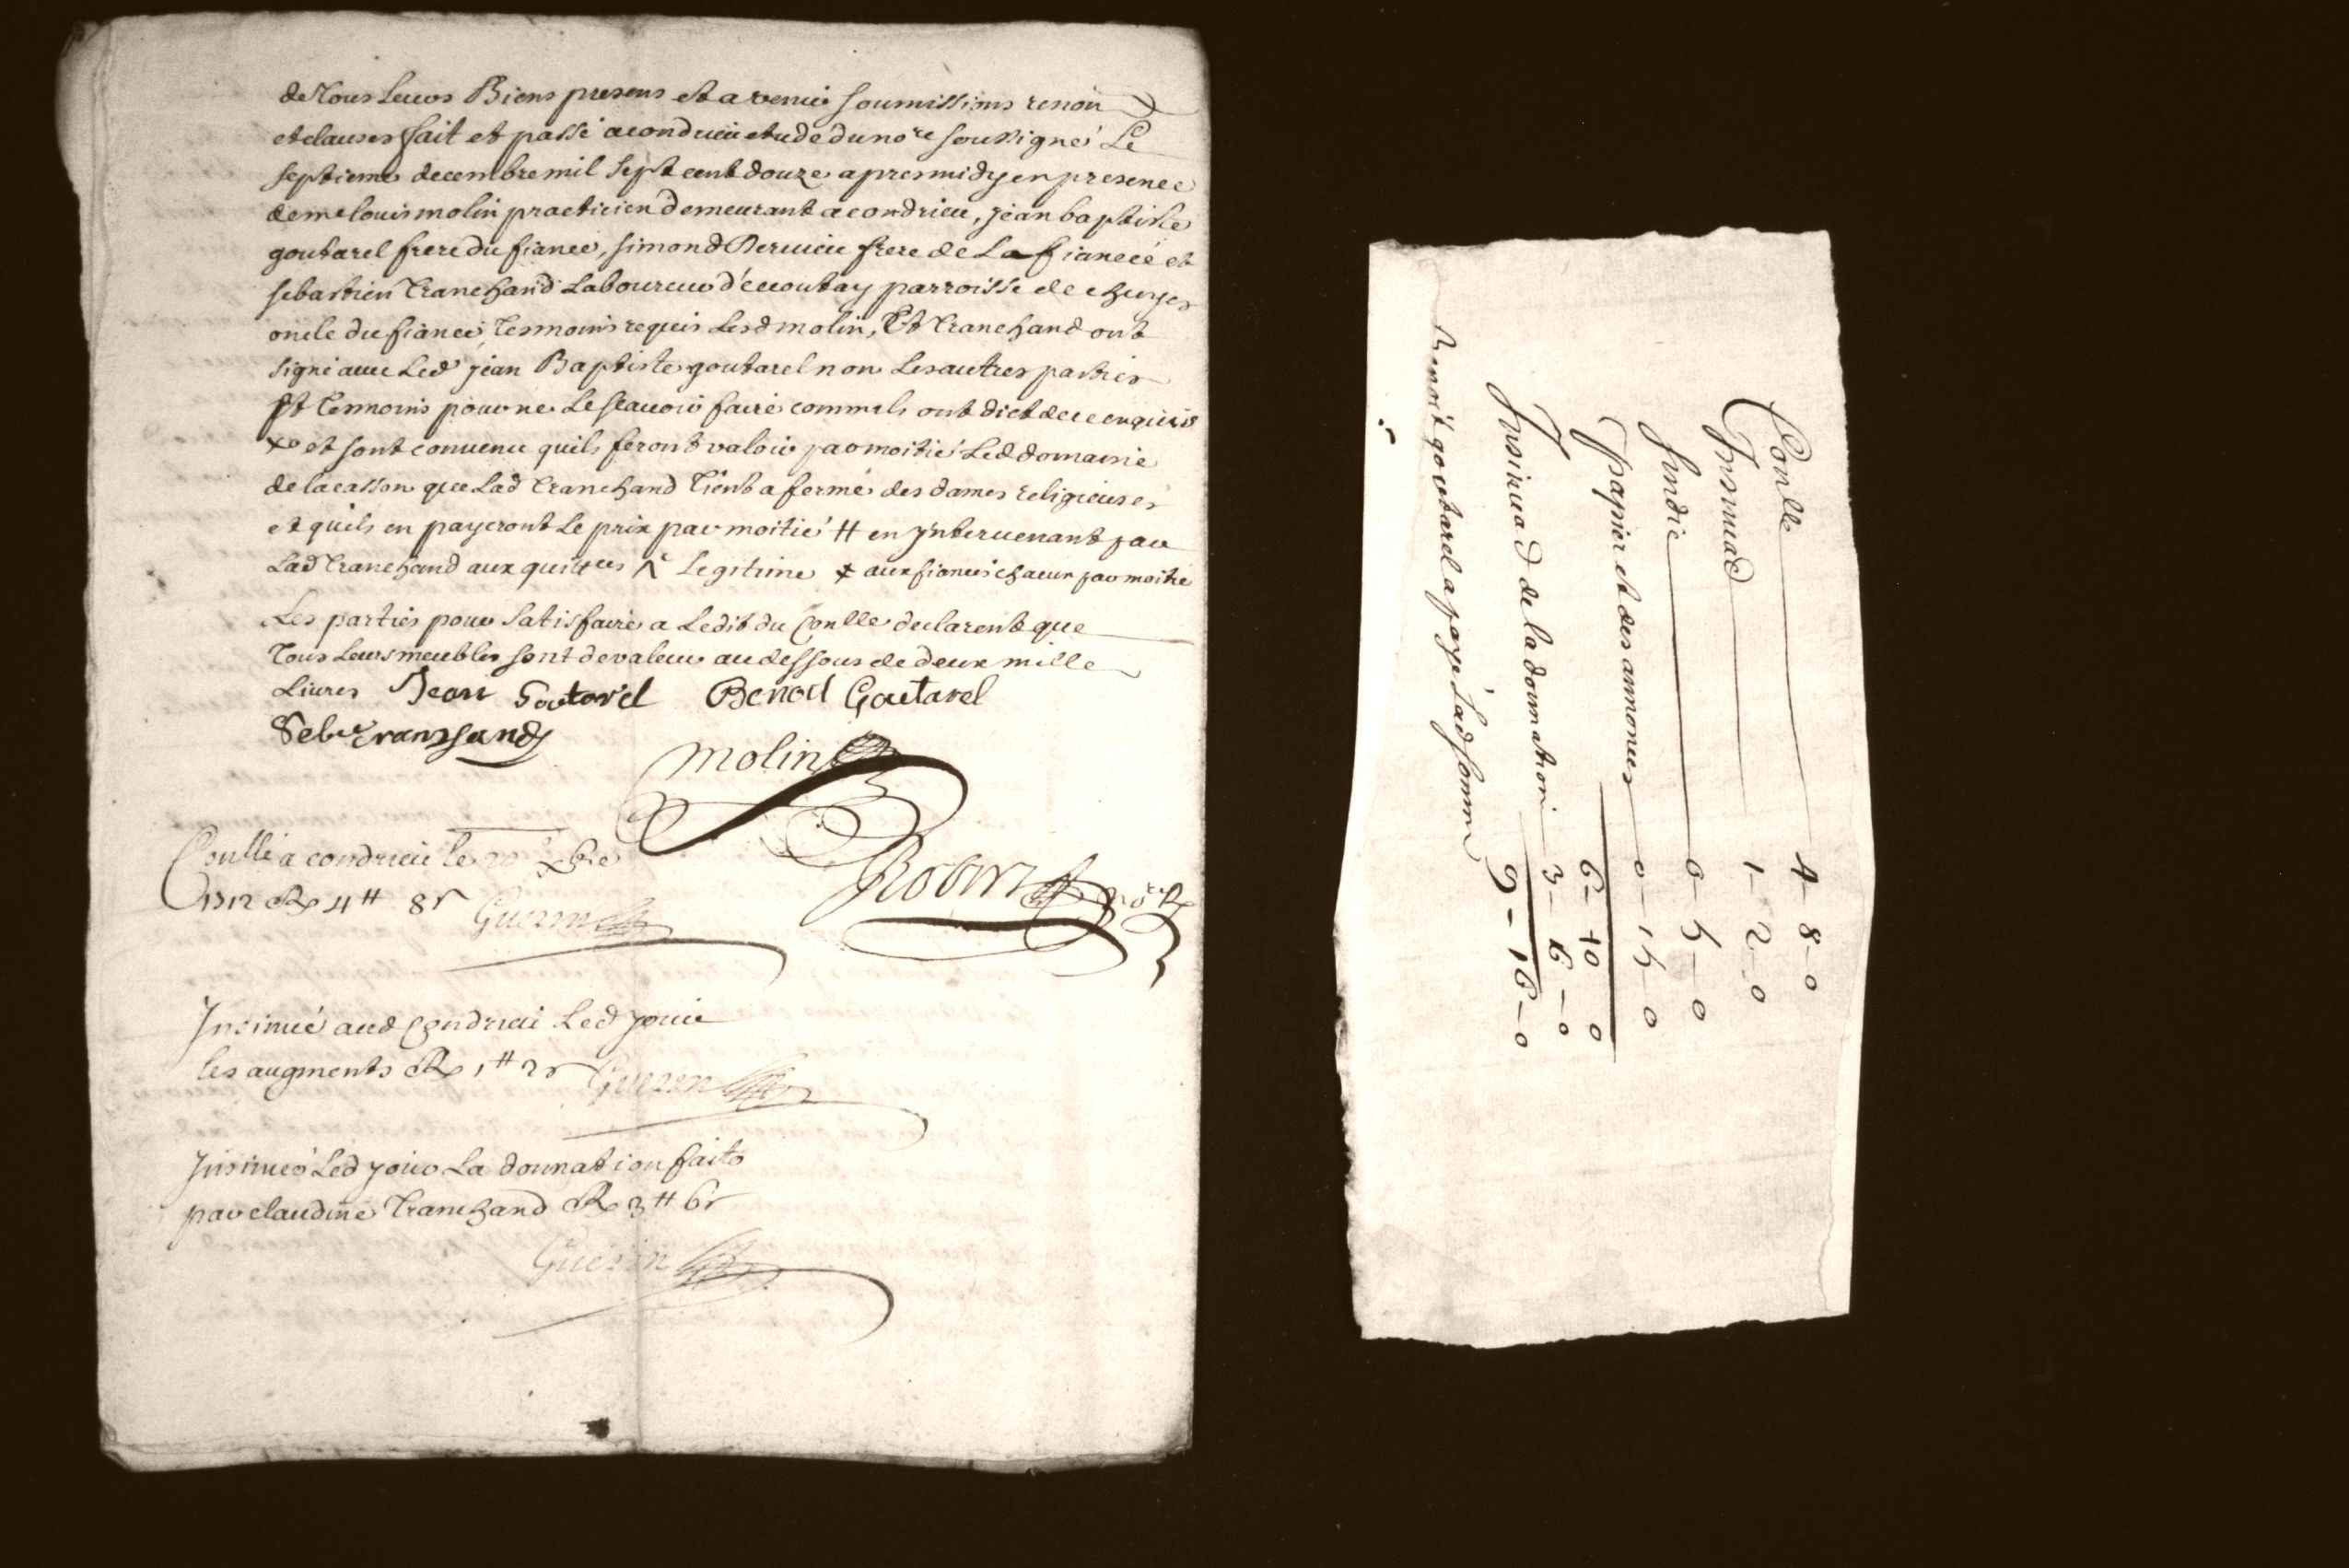 de tous leurs Biens presens et avenir soumissions renon
et clauses fait et passé a condrieu etude du nore soussigné Le
septieme decembre mil sept cent douze apres midy en presence
de me louis molin practicien demeurant a condrieu, jean baptiste
goutarel frere du fiancé, simond Veruieu frere de La fianceé et
sebastien Tranchand Laboureur d'ecoutay parroisse de
oncle du fiancé, Tesmoins requis Lesd molin, Et Tranchand ont
signé auec Led jean Baptiste goutarel non Les autres parties
Et tesmoins pour ne Le scauoir faire comm'ils ont dict de ce enquis
et sont conuenu quils feront valoir par moitié Led domaine
de la casson que Lad Tranchand Tient a ferme des dames religieuses
et quils en payeront Le prix par moitié # en Interuenant par
Lad Tranchand aux quittces Legitime aux fiancés chacun par moitié
Les parties pour satisfaire a Ledit du Conlle declarent que
Tous Leurs meubles sont de valeur au dessous de deux mille
Liures Jean Goutarel Benoit Goutarel
Sebn Transhand
molin
Conllé a condrieu le xbre
1712 R 4# 8s Guerin
Robin nore
Insinué aud Condrieu Led jour
les augments R 1# 2s Guerin
Insinué Led jour La donnation faite
par claudine Tranchand R 3# 6s
Guerin
Conlle 4-8-0
Insinuaõ 1-2-0
Sindic 0-5-0
papier et des annonces 0-15-0
6-10-0
Insinuaõ de la donnation 3-6-0
9-16-0
Benoit goutarel a payé Lad somme